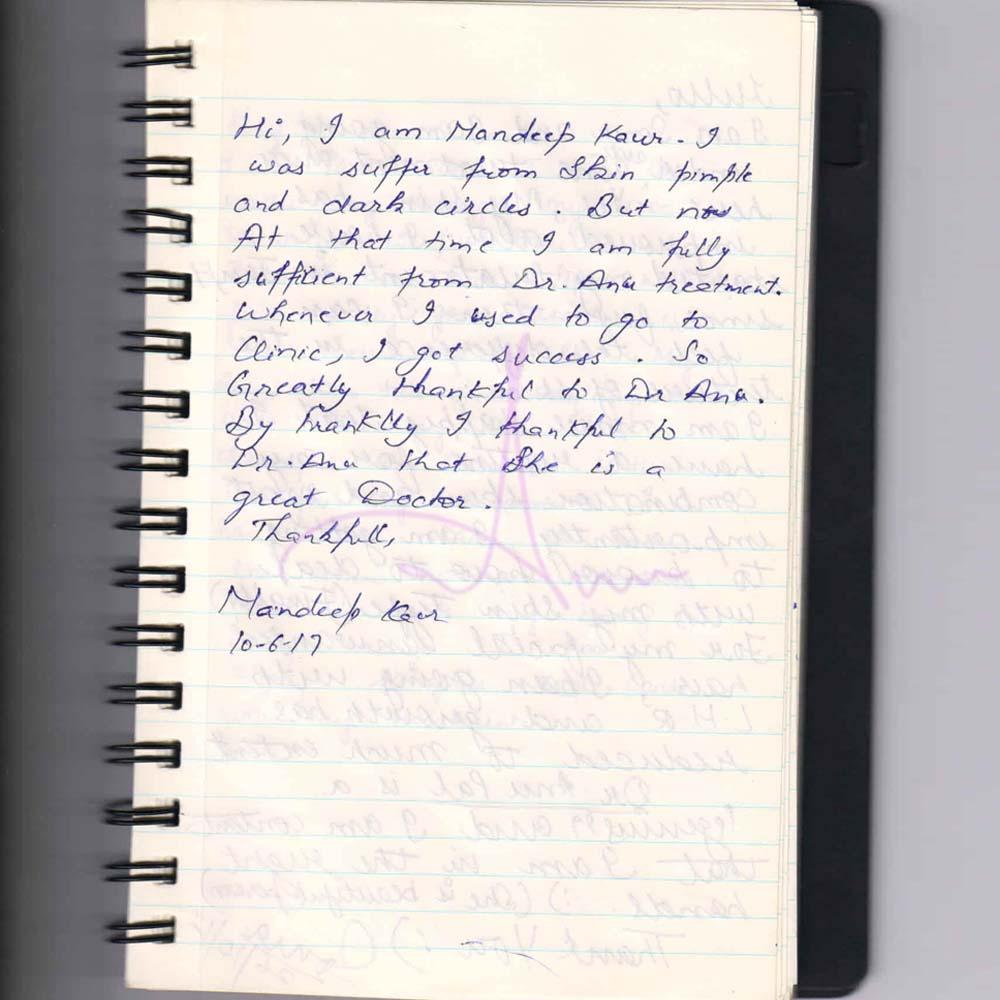 Hi, I am Mandeep Kaur. I
was suffer from Skin pimple
and dark circles. But now
At that time I am fully
sufficient from Dr. Anu treetment.
Whenever I used to go to
Clinic, I got success. So
Greatly thankful to Dr Anu.
By Franklly I thankful to
Dr. Anu that She is a
great Doctor.
Thankfull,
Mandeep Kaur
10-6-17